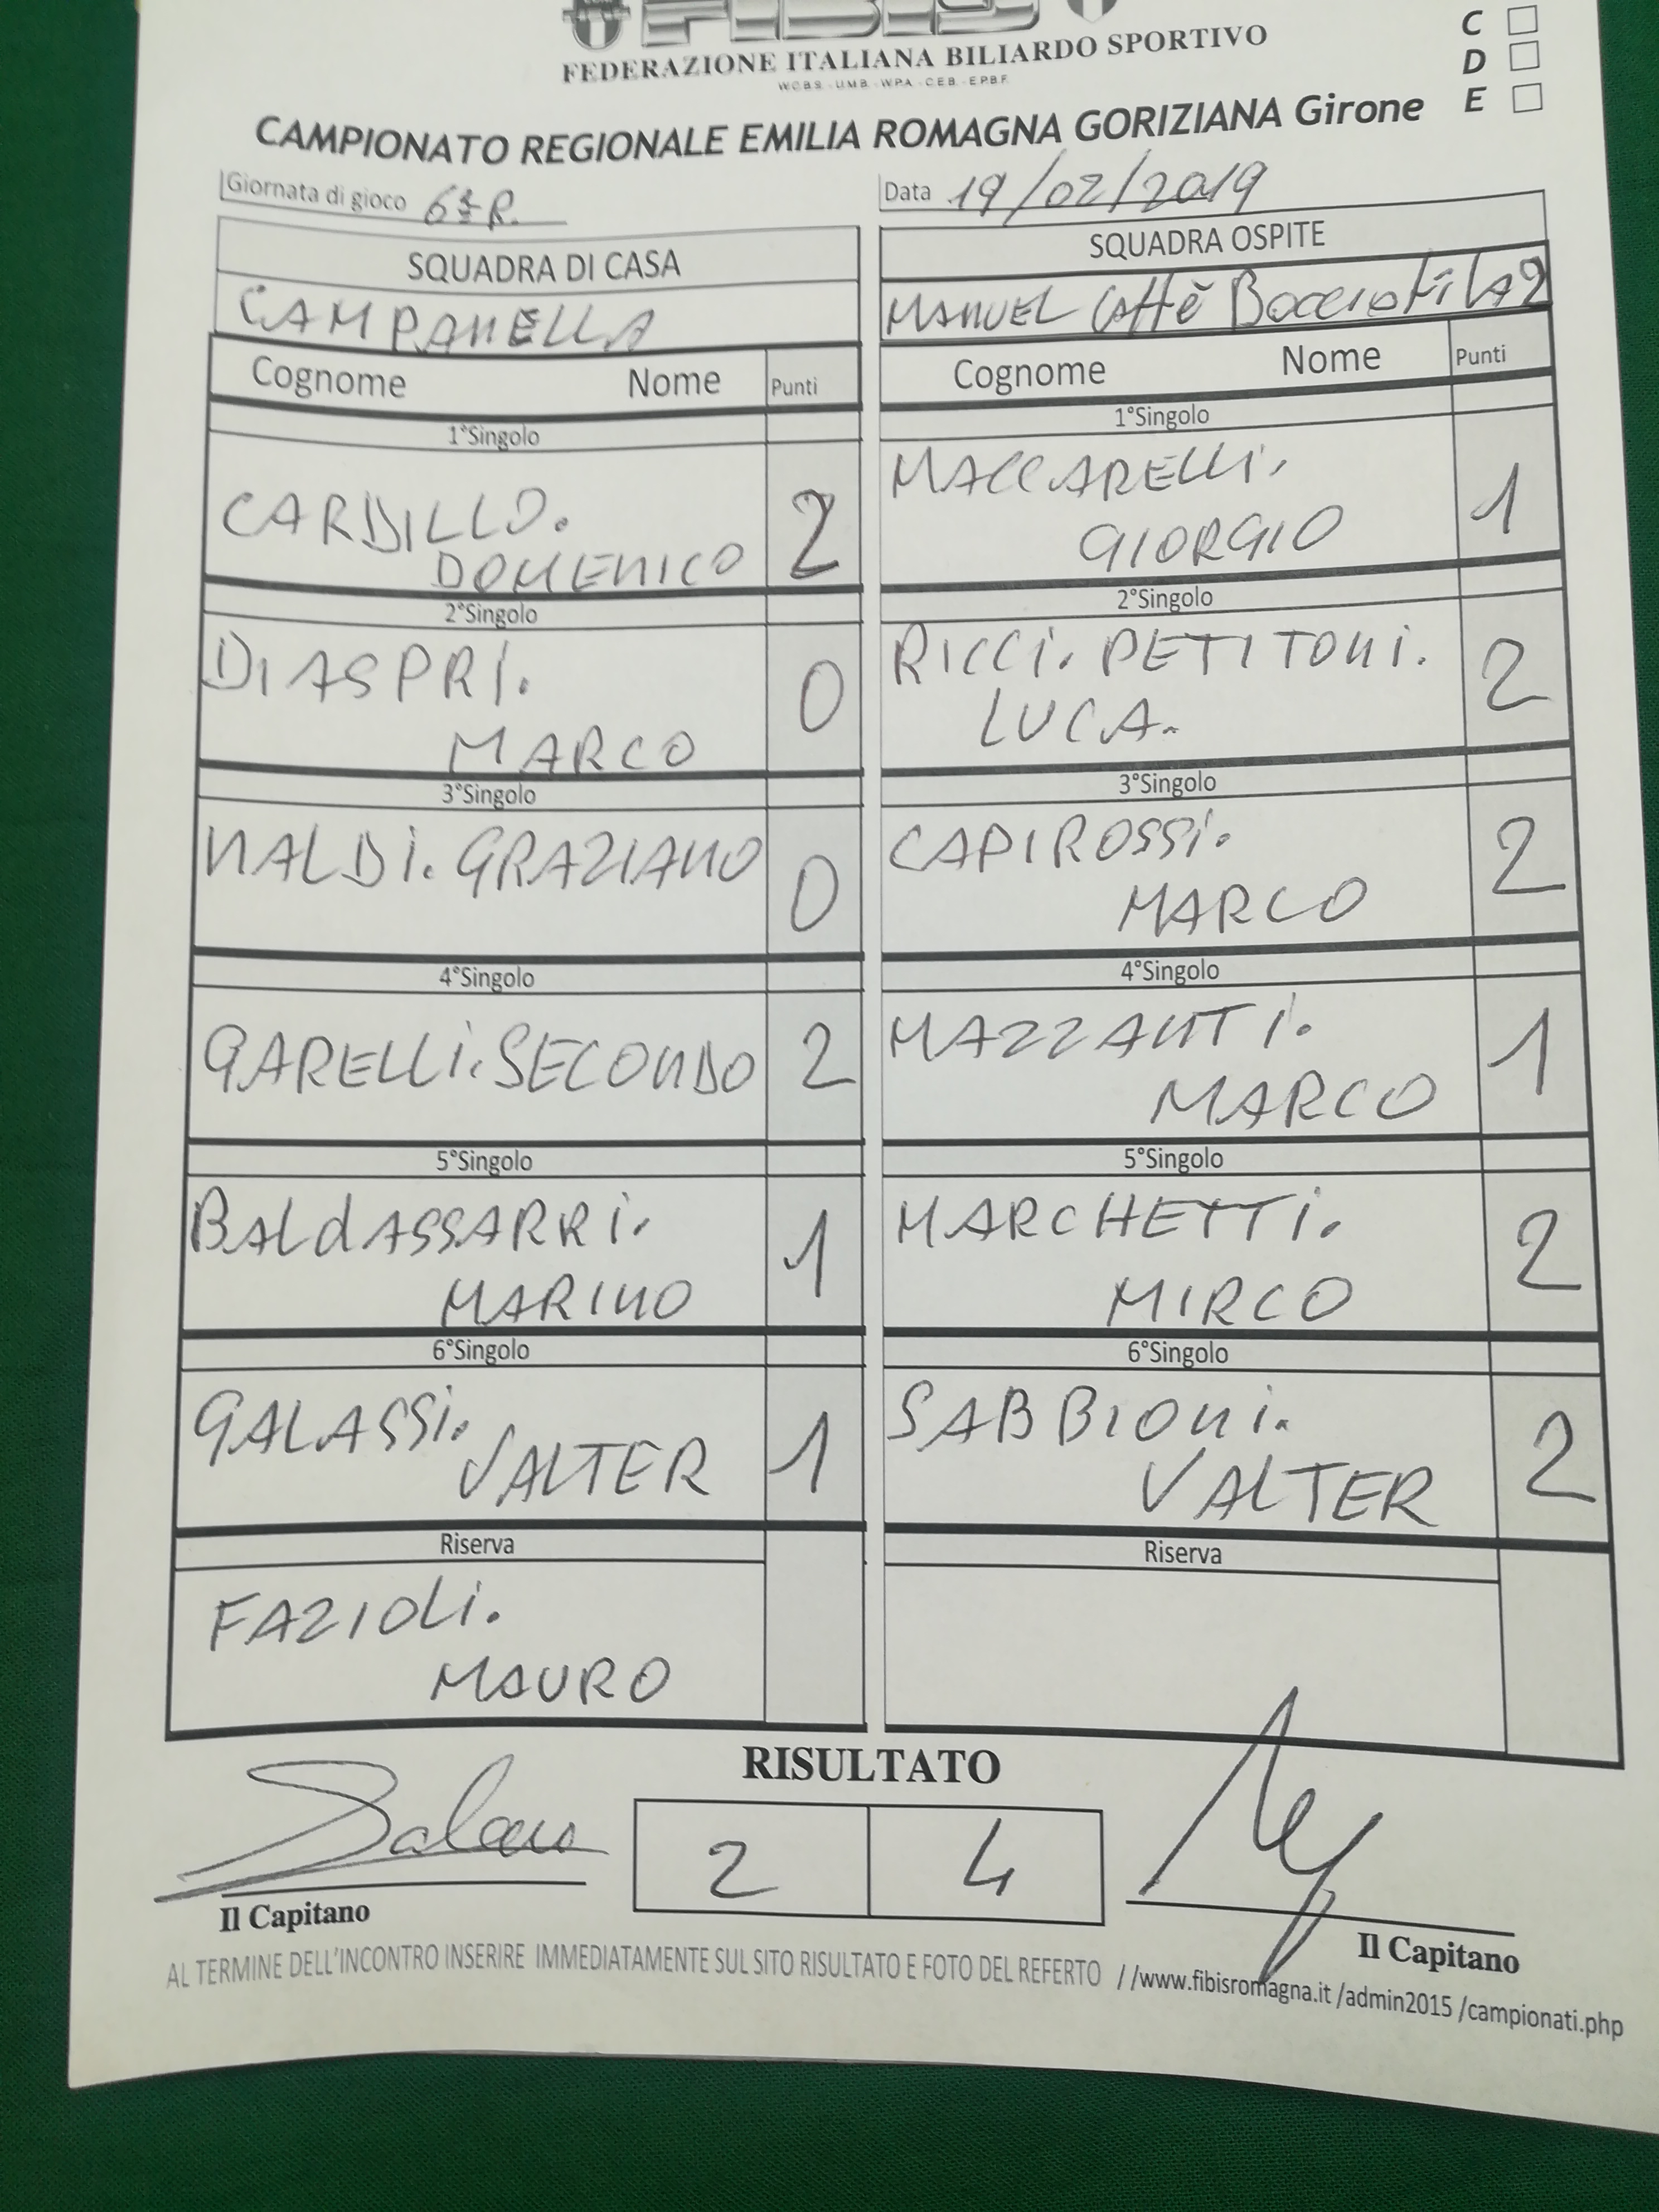 FIBIS
FEDERAZIONE ITALIANA BILIARDO SPORTIVO
W.C.B.S. - U.M.B. - W.P.A. - C.E.B. - E.P.B.F.
C
D
E
CAMPIONATO REGIONALE EMILIA ROMAGNA GORIZIANA Girone
Giornata di gioco 6ª R.
Data 19/02/2019
SQUADRA DI CASA
SQUADRA OSPITE
CAMPANELLA
MANUEL Caffè Bocciofila 2
Cognome Nome Punti
Cognome Nome Punti
1°Singolo
1°Singolo
CARDILLO.
DOMENICO
2
MACCARELLI.
GIORGIO
1
2°Singolo
2°Singolo
DIASPRI.
MARCO
0
RICCI. PETITONI.
LUCA.
2
3°Singolo
3°Singolo
NALDI. GRAZIANO
0
CAPIROSSI.
MARCO
2
4°Singolo
4°Singolo
GARELLI. SECONDO
2
MAZZANTI.
MARCO
1
5°Singolo
5°Singolo
BALdASSARRI.
MARINO
1
MARCHETTI.
MIRCO
2
6°Singolo
6°Singolo
GALASSI.
VALTER
1
SABBIONI.
VALTER
2
Riserva
Riserva
FAZIOLI.
MAURO
RISULTATO
2 4
Il Capitano
Il Capitano
AL TERMINE DELL'INCONTRO INSERIRE IMMEDIATAMENTE SUL SITO RISULTATO E FOTO DEL REFERTO //www.fibisromagna.it /admin2015 /campionati.php